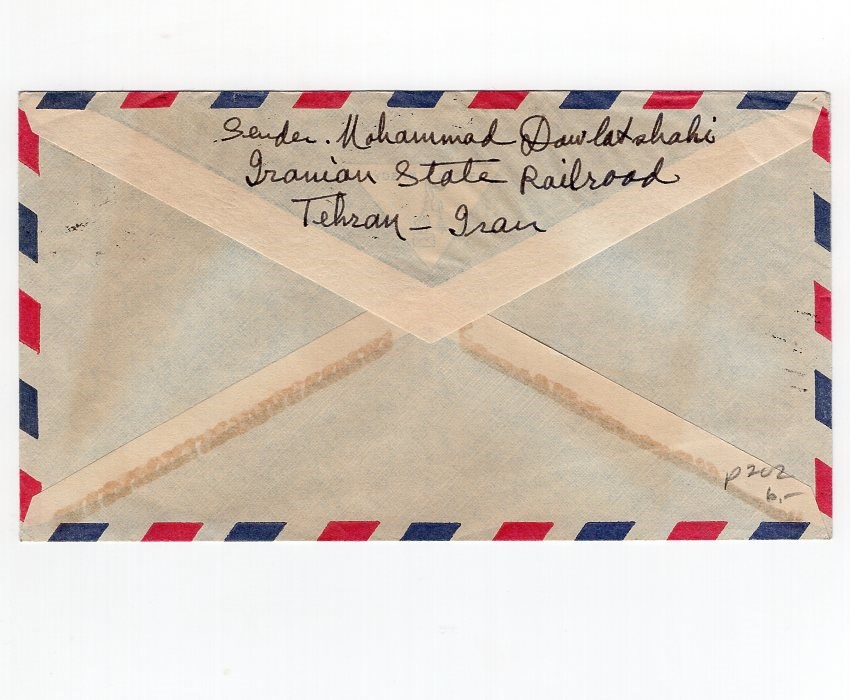 Sender. Mohammad Dawlatshahi
Iranian State Railroad
Tehran – Iran
p 202
6,–